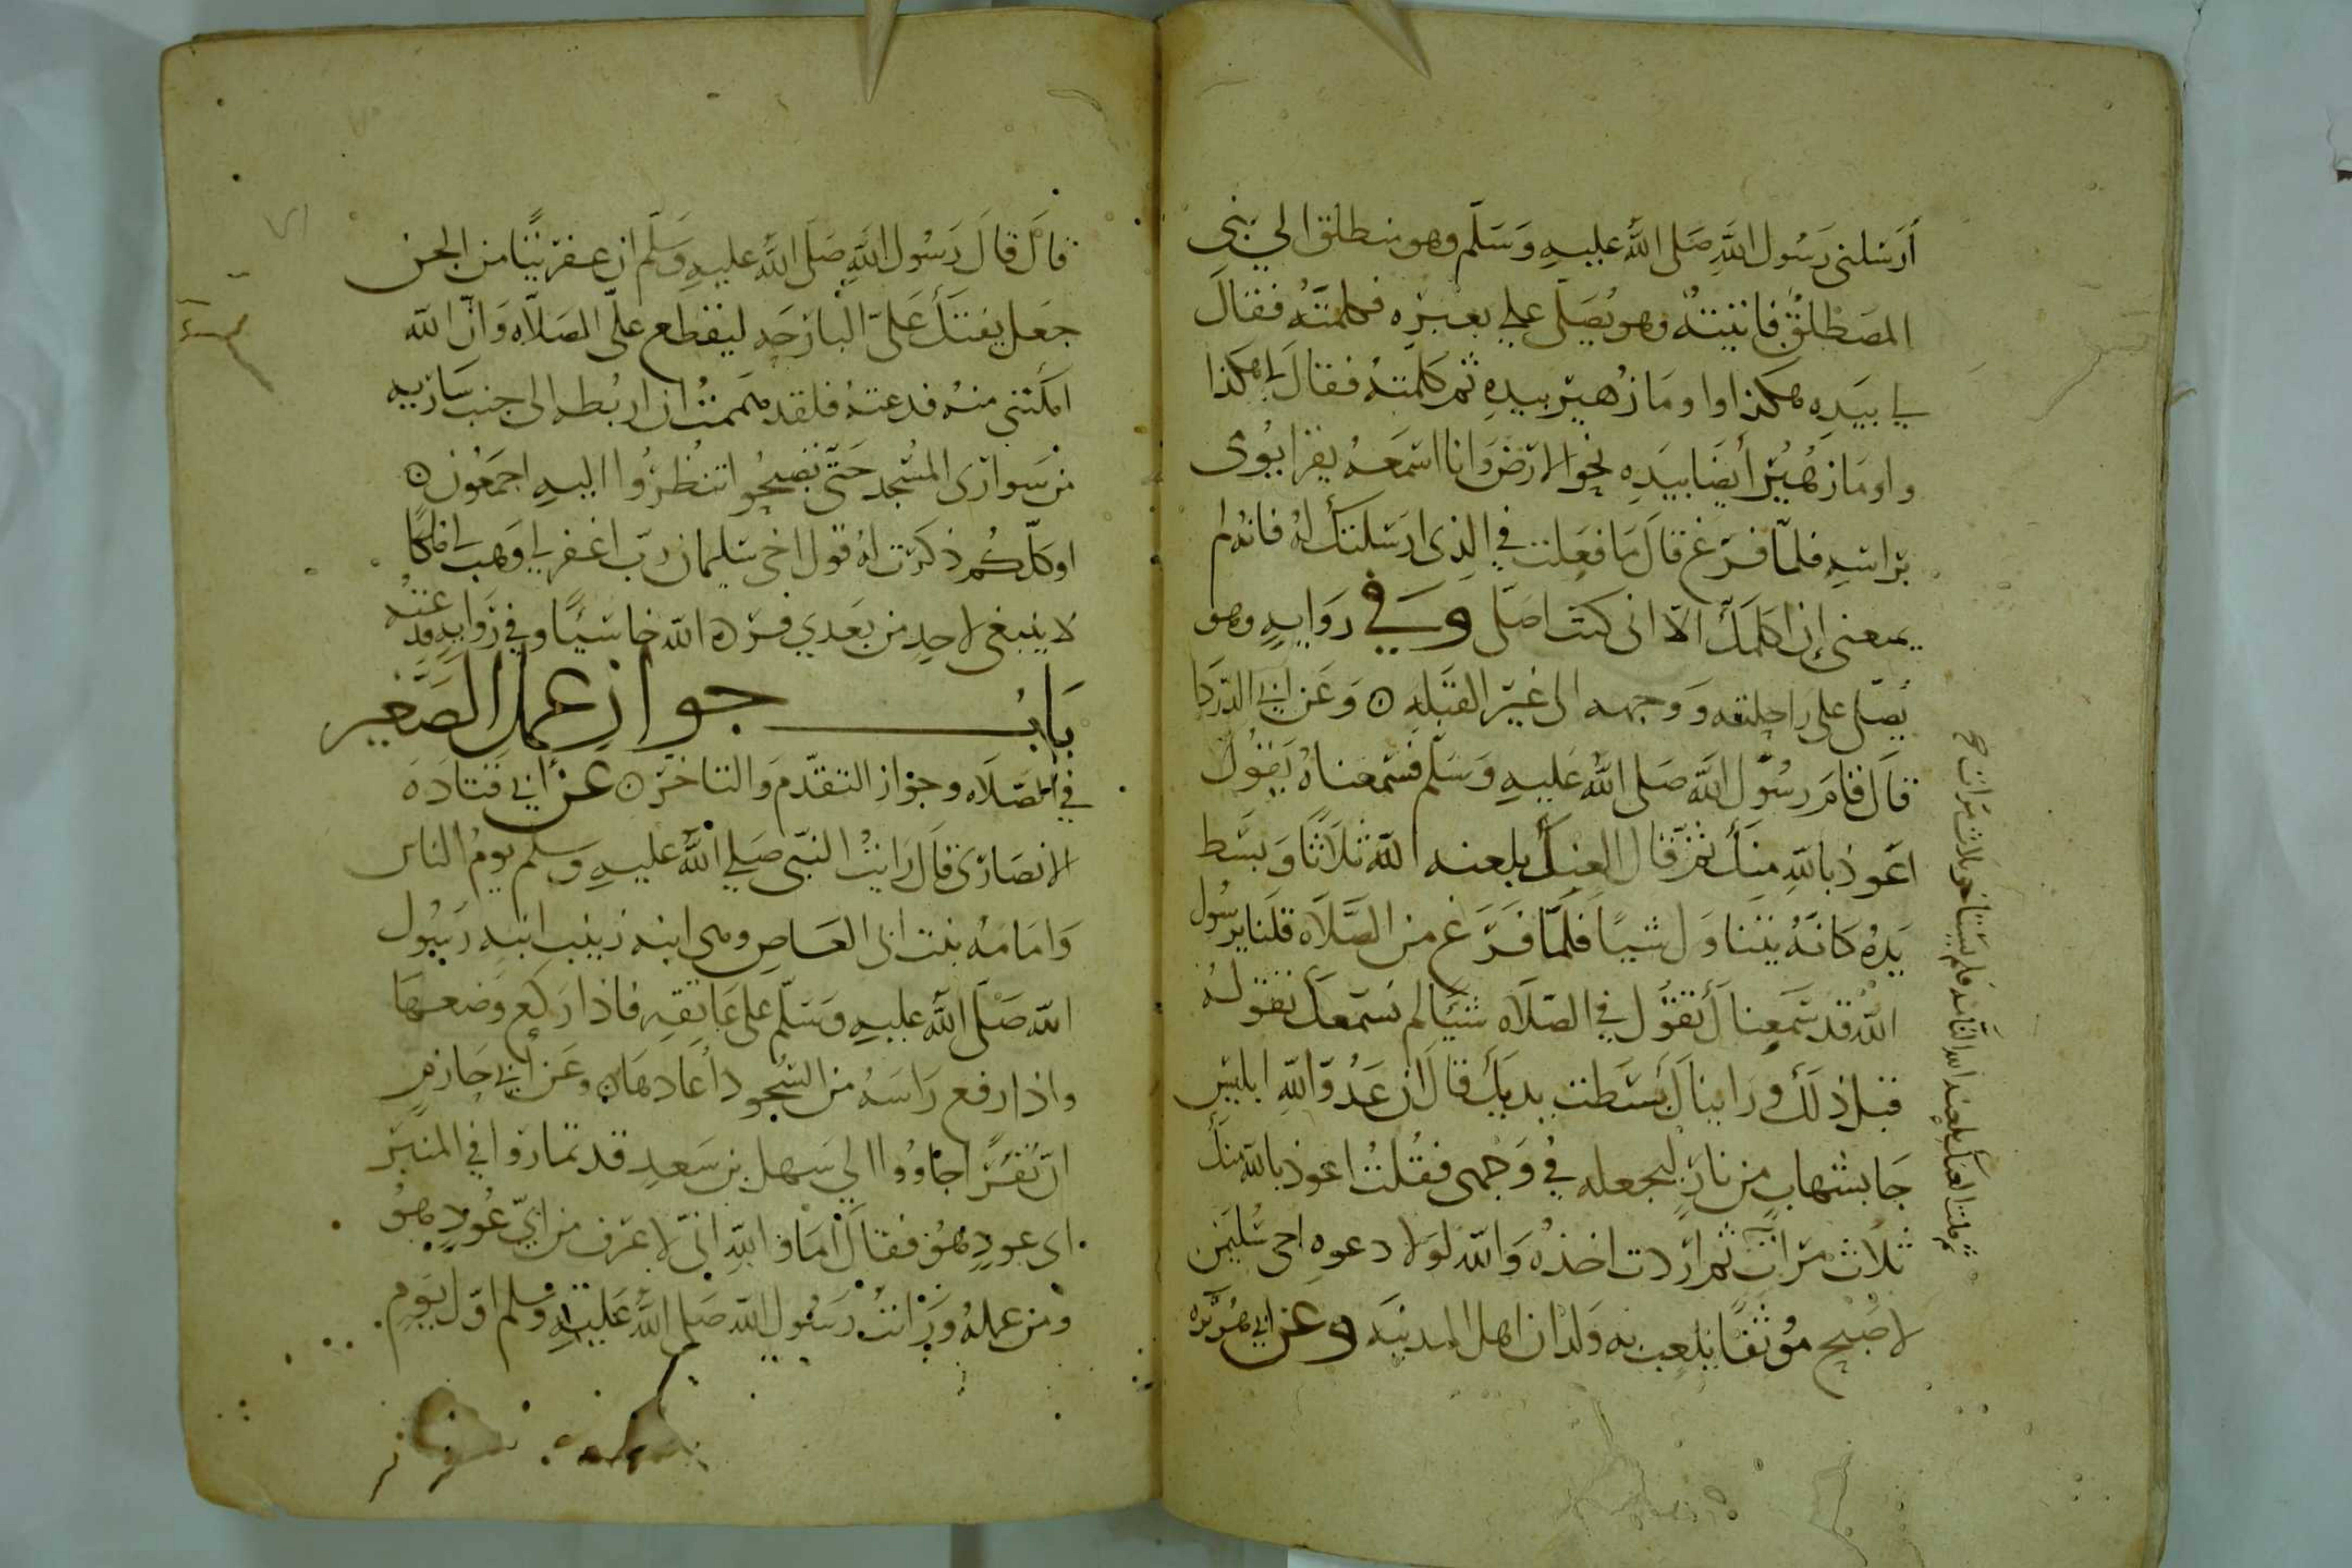 أرسلنى رسول الله صلى الله عليه وسلم وهو منطلق الى بنى
المصطلق فاتيته وهو يصلى على بعيره فكلمته فقال
لى بيده هكذا واوما زهير بيده ثم كلمته فقال لى هكذا
واوما زهير أيضا بيده نحو الارض وانا اسمعه يقرا يومى
براسه فلما فرغ قال ما فعلت في الذى ارسلتك له فانه لم
يمنعنى ان اكلمك الا انى كنت اصلى وفي رواية وهو
يصلى على راحلته ووجهه الى غير القبلة ٥ وعن ابى الدردا
قال قام رسول الله صلى الله عليه وسلم فسمعناه يقول
اعوذ بالله منك ثم قال العنك بلعنة الله ثلاثا وبسط
يده كانه يتناول شيا فلما فرغ من الصلاة قلنا يرسول
الله قد سمعناك تقول في الصلاة شيئا لم نسمعك تقوله
قبل ذلك ورايناك بسطت يديك قال ان عدو الله ابليس
جا بشهاب من نار ليجعله في وجهى فقلت اعوذ بالله منك
ثلاث مرات ثم اردت اخذه والله لولا دعوة اخى سليمن
لاصبح موثقا يلعب به ولدان اهل المدينة وعن ابى هريرة
ثم قلت العنك بلعنة الله التامة فلم يستاخر ثلاث مرات صح
قال قال رسول الله صلى الله عليه وسلم ان عفريتا من الجن
جعل يفتك على البارحة ليقطع على الصلاة وان الله
امكننى منه فدعته فلقد هممت ان اربطه الى جنب سارية
من سوارى المسجد حتى تصبحوا تنظروا اليه اجمعون ٥
او كلكم ذكرت قول اخى سليمان رب اغفر لى وهب لى ملكا
لا ينبغى لاحد من بعدي فرده الله خاسئا وفي رواية فدعته
باب جواز عمل الصغير
في الصلاة وجواز التقدم والتاخر ٥ عن ابى قتادة
الانصارى قال رايت النبى صلى الله عليه وسلم يوم الناس
وامامة بنت ابى العاص وهى ابنة زينب ابنة رسول
الله صلى الله عليه وسلم على عاتقه فاذا ركع وضعها
واذا رفع راسه من السجود أعادها ٥ وعن ابى حازم
ان نفرا جاووا الى سهل بن سعد قد تماروا في المنبر
اى عود هو فقال اما والله انى لاعرف من اى عود هو
ومن عمله ورايت رسول الله صلى الله عليه وسلم اول يوم